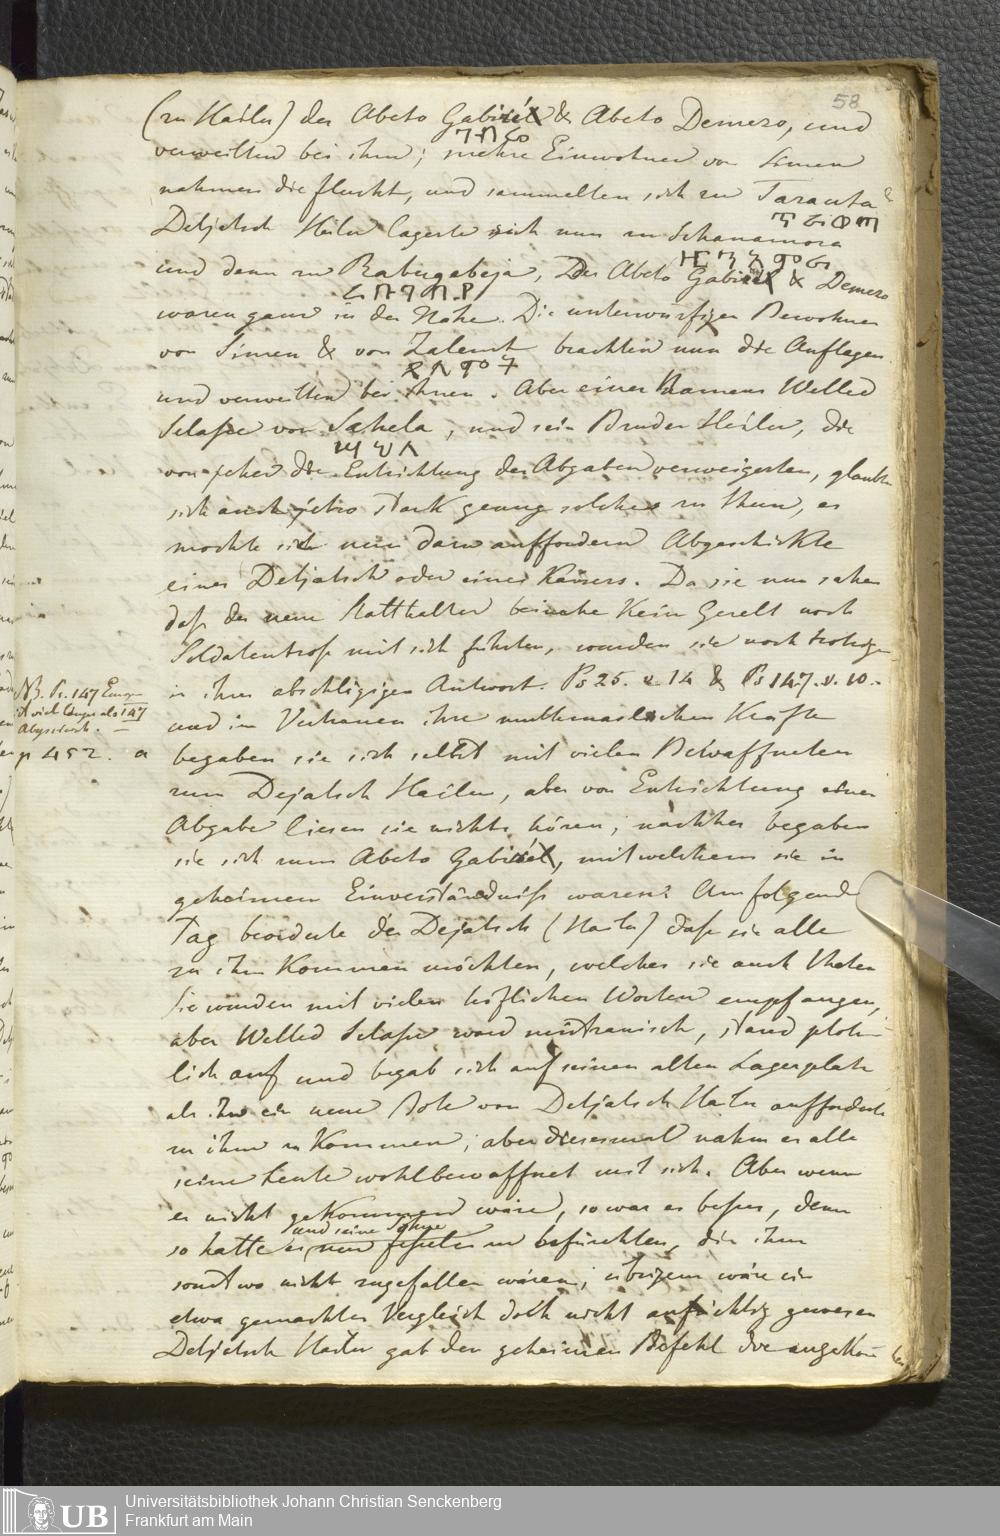 58
(zu Hailu) der Abeto Gabriel & Abeto Demezo, und
ገብሪ
verweilten bei ihm; mehre Einwohner von Simen
nahmen die Flucht, und sammelten sich zu Taranta
Detjatsch Hailu lagerte sich nun zu Schanamora
und dann zu Rabugabeja, Der Abeto Gabriel & Demezo
waren ganz in der Nähe. Die unterwürfigen Bewohner
von Simen & von Zalemt brachten nun die Auflagen
ጸለምት
und verweilten bei ihnen. Aber einer Namens Welled
Selasse von Sahela, und sein Bruder Hailu, die
ሣህላ
von jeher die Entrichtung der Abgaben verweigerten, glaubten
sich auch jetzo stark genug solches zu thun, es
mochte sie nun dazu auffordern Abgeschickte
eines Detjatsch oder eines Kaisers. Da sie nun sahen
daß der neue Statthalter beinahe kein Gezelt noch
Soldatentroß mit sich führten, wurden sie noch trotziger
in ihrer abschlägigen Antwort. Ps 25. v. 14 & Ps 147. v. 10.
NB. Ps. 147 Europ
ist viel länger als 147
Abyssinisch.
p 452. a
und im Vertrauen ihre muthmaslichen Kräfte
begaben sie sich selbst mit vielen Bewaffneten
zum Dejatsch Hailu, aber von Entrichtung einer
Abgabe liesen sie nichts hören; nachher begaben
sie sich zum Abeto Gabriel, mit welchem sie in
geheimen Einverständniß waren. Am folgenden
Tag beorderte der Dejatsch (Hailu) daß sie alle
zu ihm kommen möchten, welches sie auch thaten
Sie wurden mit vielen höflichen Worten empfangen,
aber Welled Selasse ward mistrauisch, stand plötz-
lich auf und begab sich auf seinen alten Lagerplatz
als ihn ein neuer Bote von Detjatsch Hailu aufforderte
zu ihm zu kommen; aber diesesmal nahm er alle
seine Leute wohlbewaffnet mit sich. Aber wenn
er nicht gekommen wäre, so war es besser, denn
und seine Söhne
so hatte er nun zu befürchten, die ihm
sonst wo nicht zugefallen wären; übrigens wäre ein
etwa gemachter Vergleich doch nicht aufrichtig gewesen
Detjatsch Hailu gab den geheimen Befehl die angekom
Universitätsbibliothek Johann Christian Senckenberg
Frankfurt am Main
UB